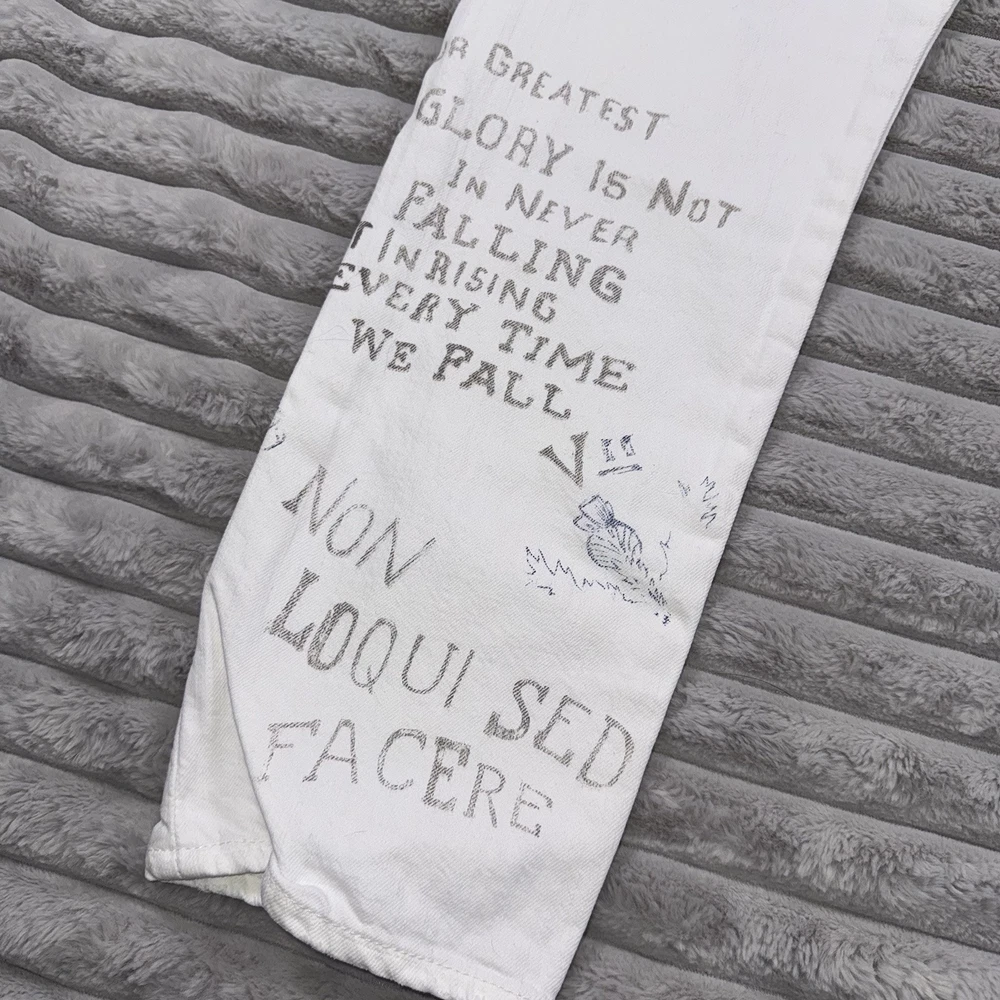 UR GREATEST
GLORY IS NOT
IN NEVER
FALLING
T IN RISING
EVERY TIME
WE FALL
NON
LOQUI SED
FACERE